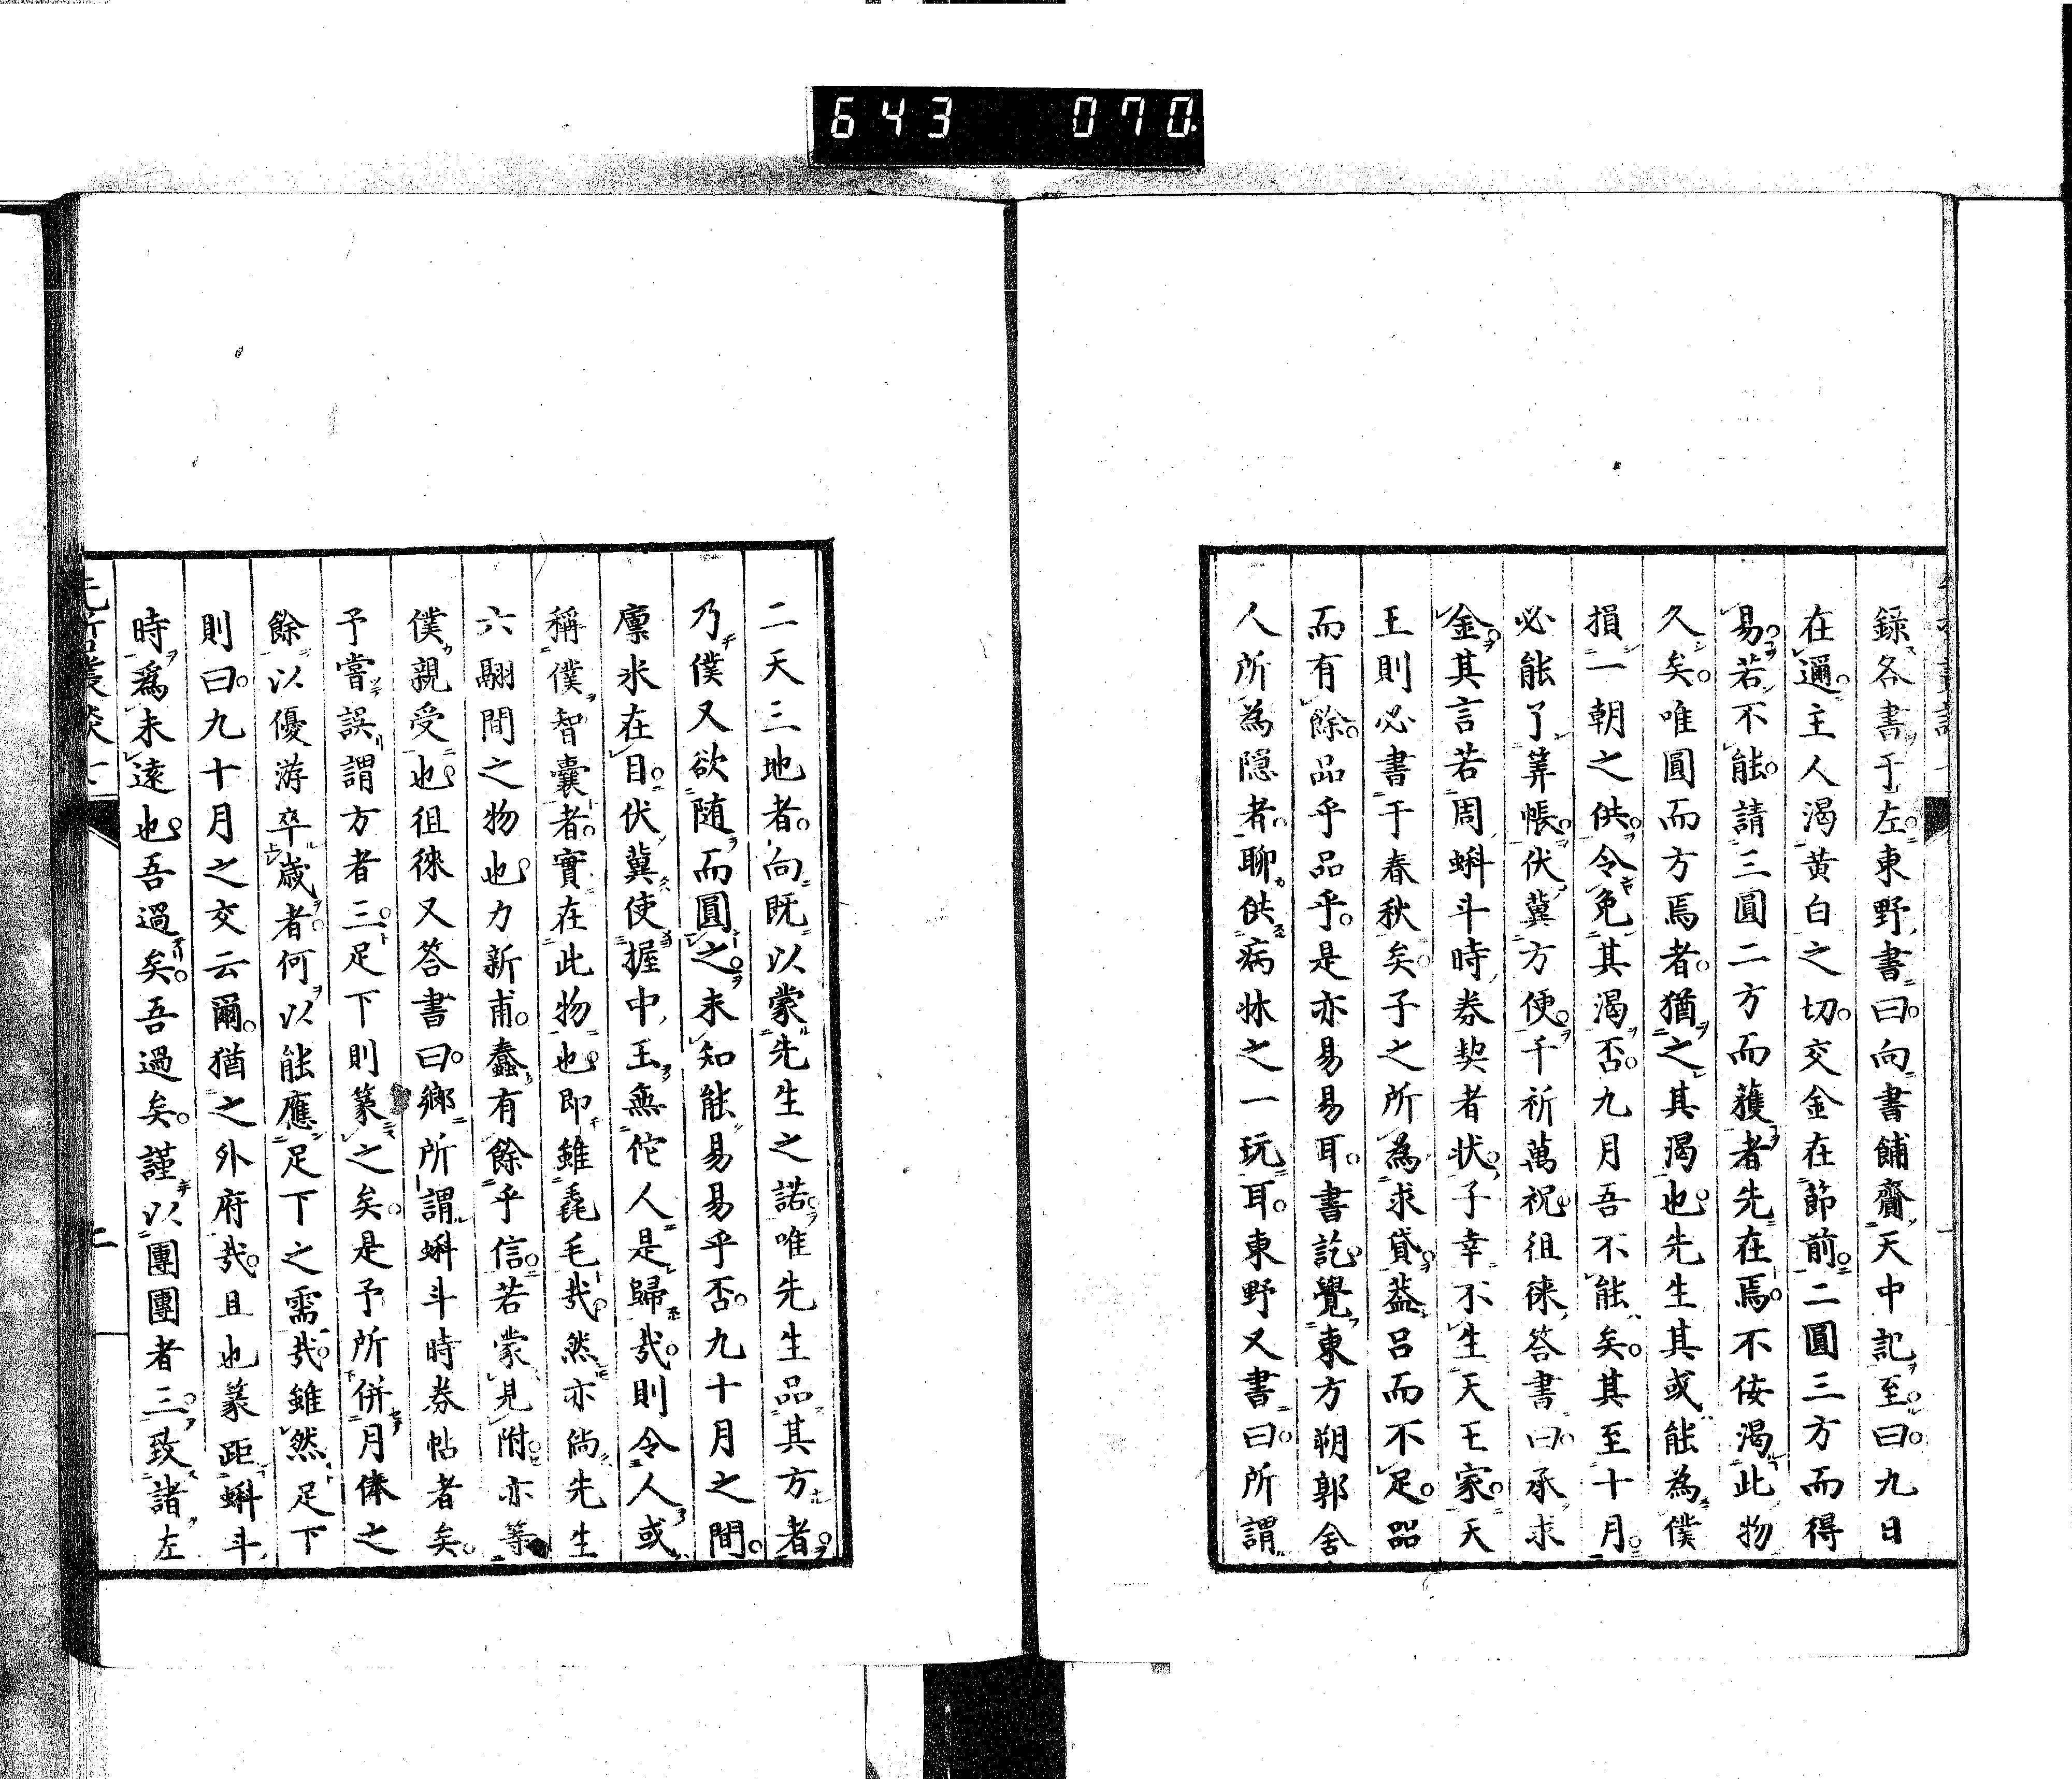 643 070
錄各書于左東野書曰向書鋪齎天中記至曰九日
在邇主人渴黄白之切交金在節前二圓三方而得
易若不能請三圓二方而獲者先在焉不佞渴此物
久矣唯圓而方焉者猶之其渴也先生其或能為僕
損一朝之供令免其渴否九月吾不能矣其至十月
必能了筭帳伏冀方便千祈萬祝徂徠答書曰承求
金其言若周蝌斗時券契者状子幸不生天王家天
王則必書于春秋矣子之所為求貸葢呂而不足㗊
而有餘品乎品乎是亦易易耳書訖覺東方朔郭舍
人所為隠者聊供病牀之一玩耳東野又書曰所謂
二天三地者向既以蒙先生之諾唯先生品其方者
乃僕又欲随而圓之未知能易易乎否九十月之間
廪米在目伏冀使握中玉無佗人是歸㢤則令人或
稱僕智囊者實在此物也即雖毳毛㢤然亦尚先生
六翮間之物也力新甫蠢有餘乎信若蒙見附亦等
僕親受也徂徠又答書曰鄉所謂蝌斗時券帖者矣
予嘗誤謂方者三足下則篆之矣是予所併月俸之
餘以優游卒歲者何以能應足下之需㢤雖然足下
則曰九十月之交云爾猶之外府㢤且也篆距蝌斗
時爲未遠也吾過矣吾過矣謹以團團者三致諸左